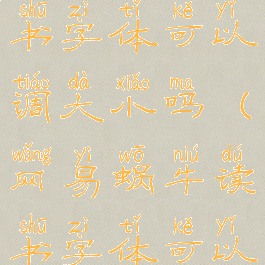 shū zì tǐ kě yǐ
书字体可以
tiáo dà xiǎo ma
调大小吗（
wǎng yì wō niú dú
网易蜗牛读
shū zì tǐ kě yǐ
书字体可以